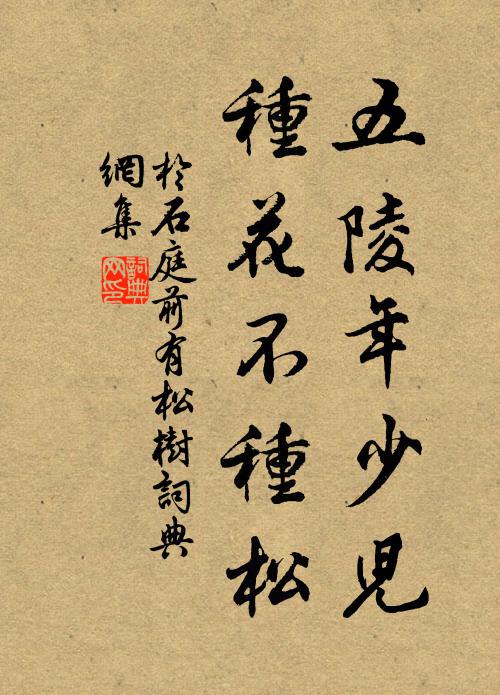 五陵年少兒
種花不種松
於石庭前有松樹詞典
網集
詞典
网印